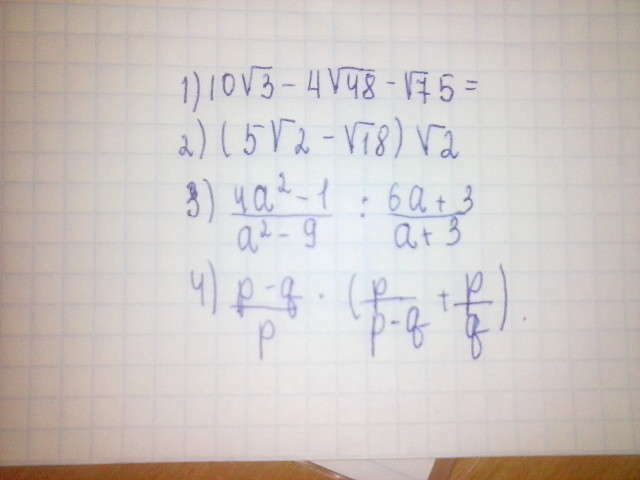 1) 10√3 - 4√48 - √75 =
2) (5√2 - √18) √2
3) (4a² - 1)/(a² - 9) : (6a + 3)/(a + 3)
4) (p - q)/p · (p/(p - q) + p/q).